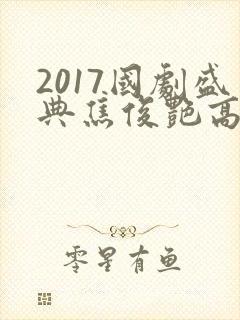 2017.國劇盛
典焦俊艷高
零星有鱼